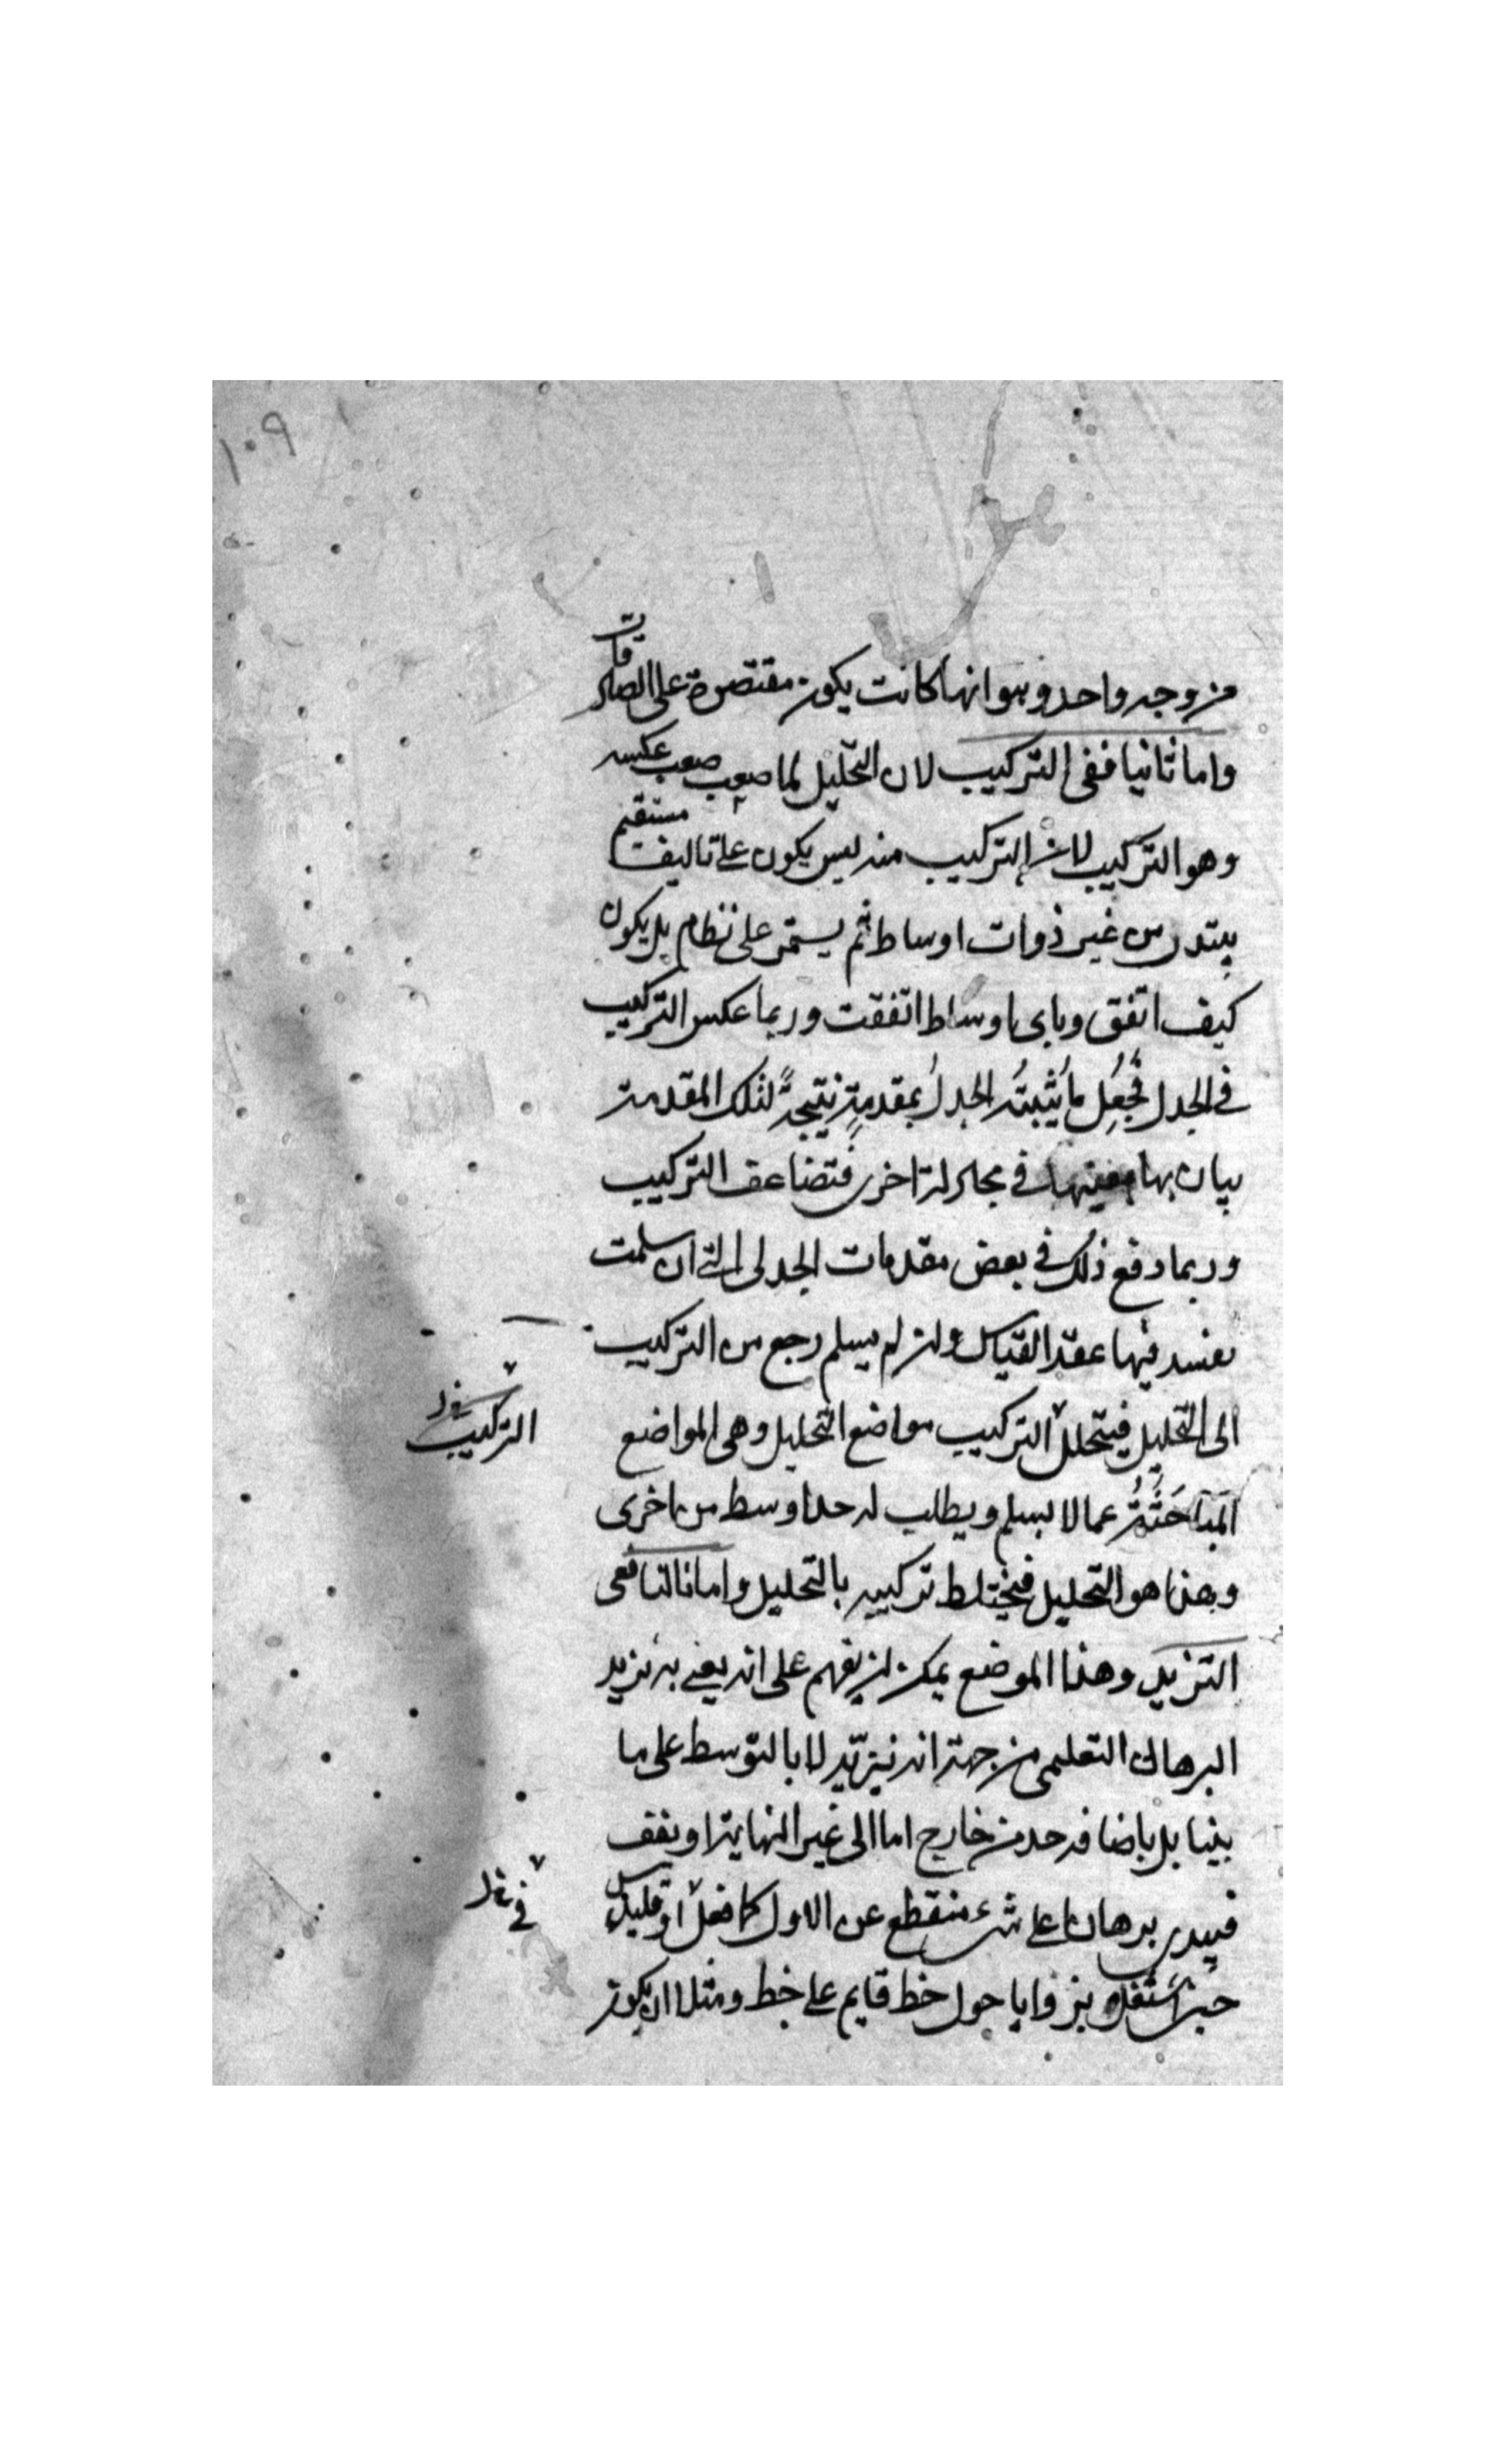 ١٠٩
من وجه واحد وهو انها كانت يكون مقتصرة على الصادقات
واما ثانيا ففى التركيب لان التحليل لما صعب صعب عكسه
وهو التركيب لان التركيب منه ليس يكون على تاليف مستقيم
يبتدى من غير ذوات اوساط ثم يستمر على نظام بل يكون
كيف اتفق وباى اوساط اتفقت وربما عكس التركيب
فى الجدل فجُعِل ما يُثبِتُه الجدلُ بمقدمةٍ نتيجةً لتلك المقدمة
بيان بها بعينها فى مجادلة اخرى فتضاعف التركيب
وربما دفع ذلك فى بعض مقدمات الجدلى التى ان سلمت
نفسد فيها عقد القياس وان لم يسلم رجع من التركيب
الى التحليل فيتخلل التركيب مواضع التحليل وهى المواضع
التركيب
المَبَاحَثَةُ عما لا يسلم ويطلب له حدا وسط من اخرى
وهذا هو التحليل فيختلط تركيبه بالتحليل واما ثالثا ففى
التزيد وهذا الموضع يمكن ان يفهم على انه يعنى به تزيد
البرهان التعليمى من جهة انه يتزيّد لا بالتوسط على ما
بينا بل باضافة حد من خارج اما الى غير النهاية او يقف
فيبدى برهانا على شىء منقطع عن الاول كما فعل اوقليدس
فى
حين بزوايا حول خط قايم على خط ومثل ان يكون